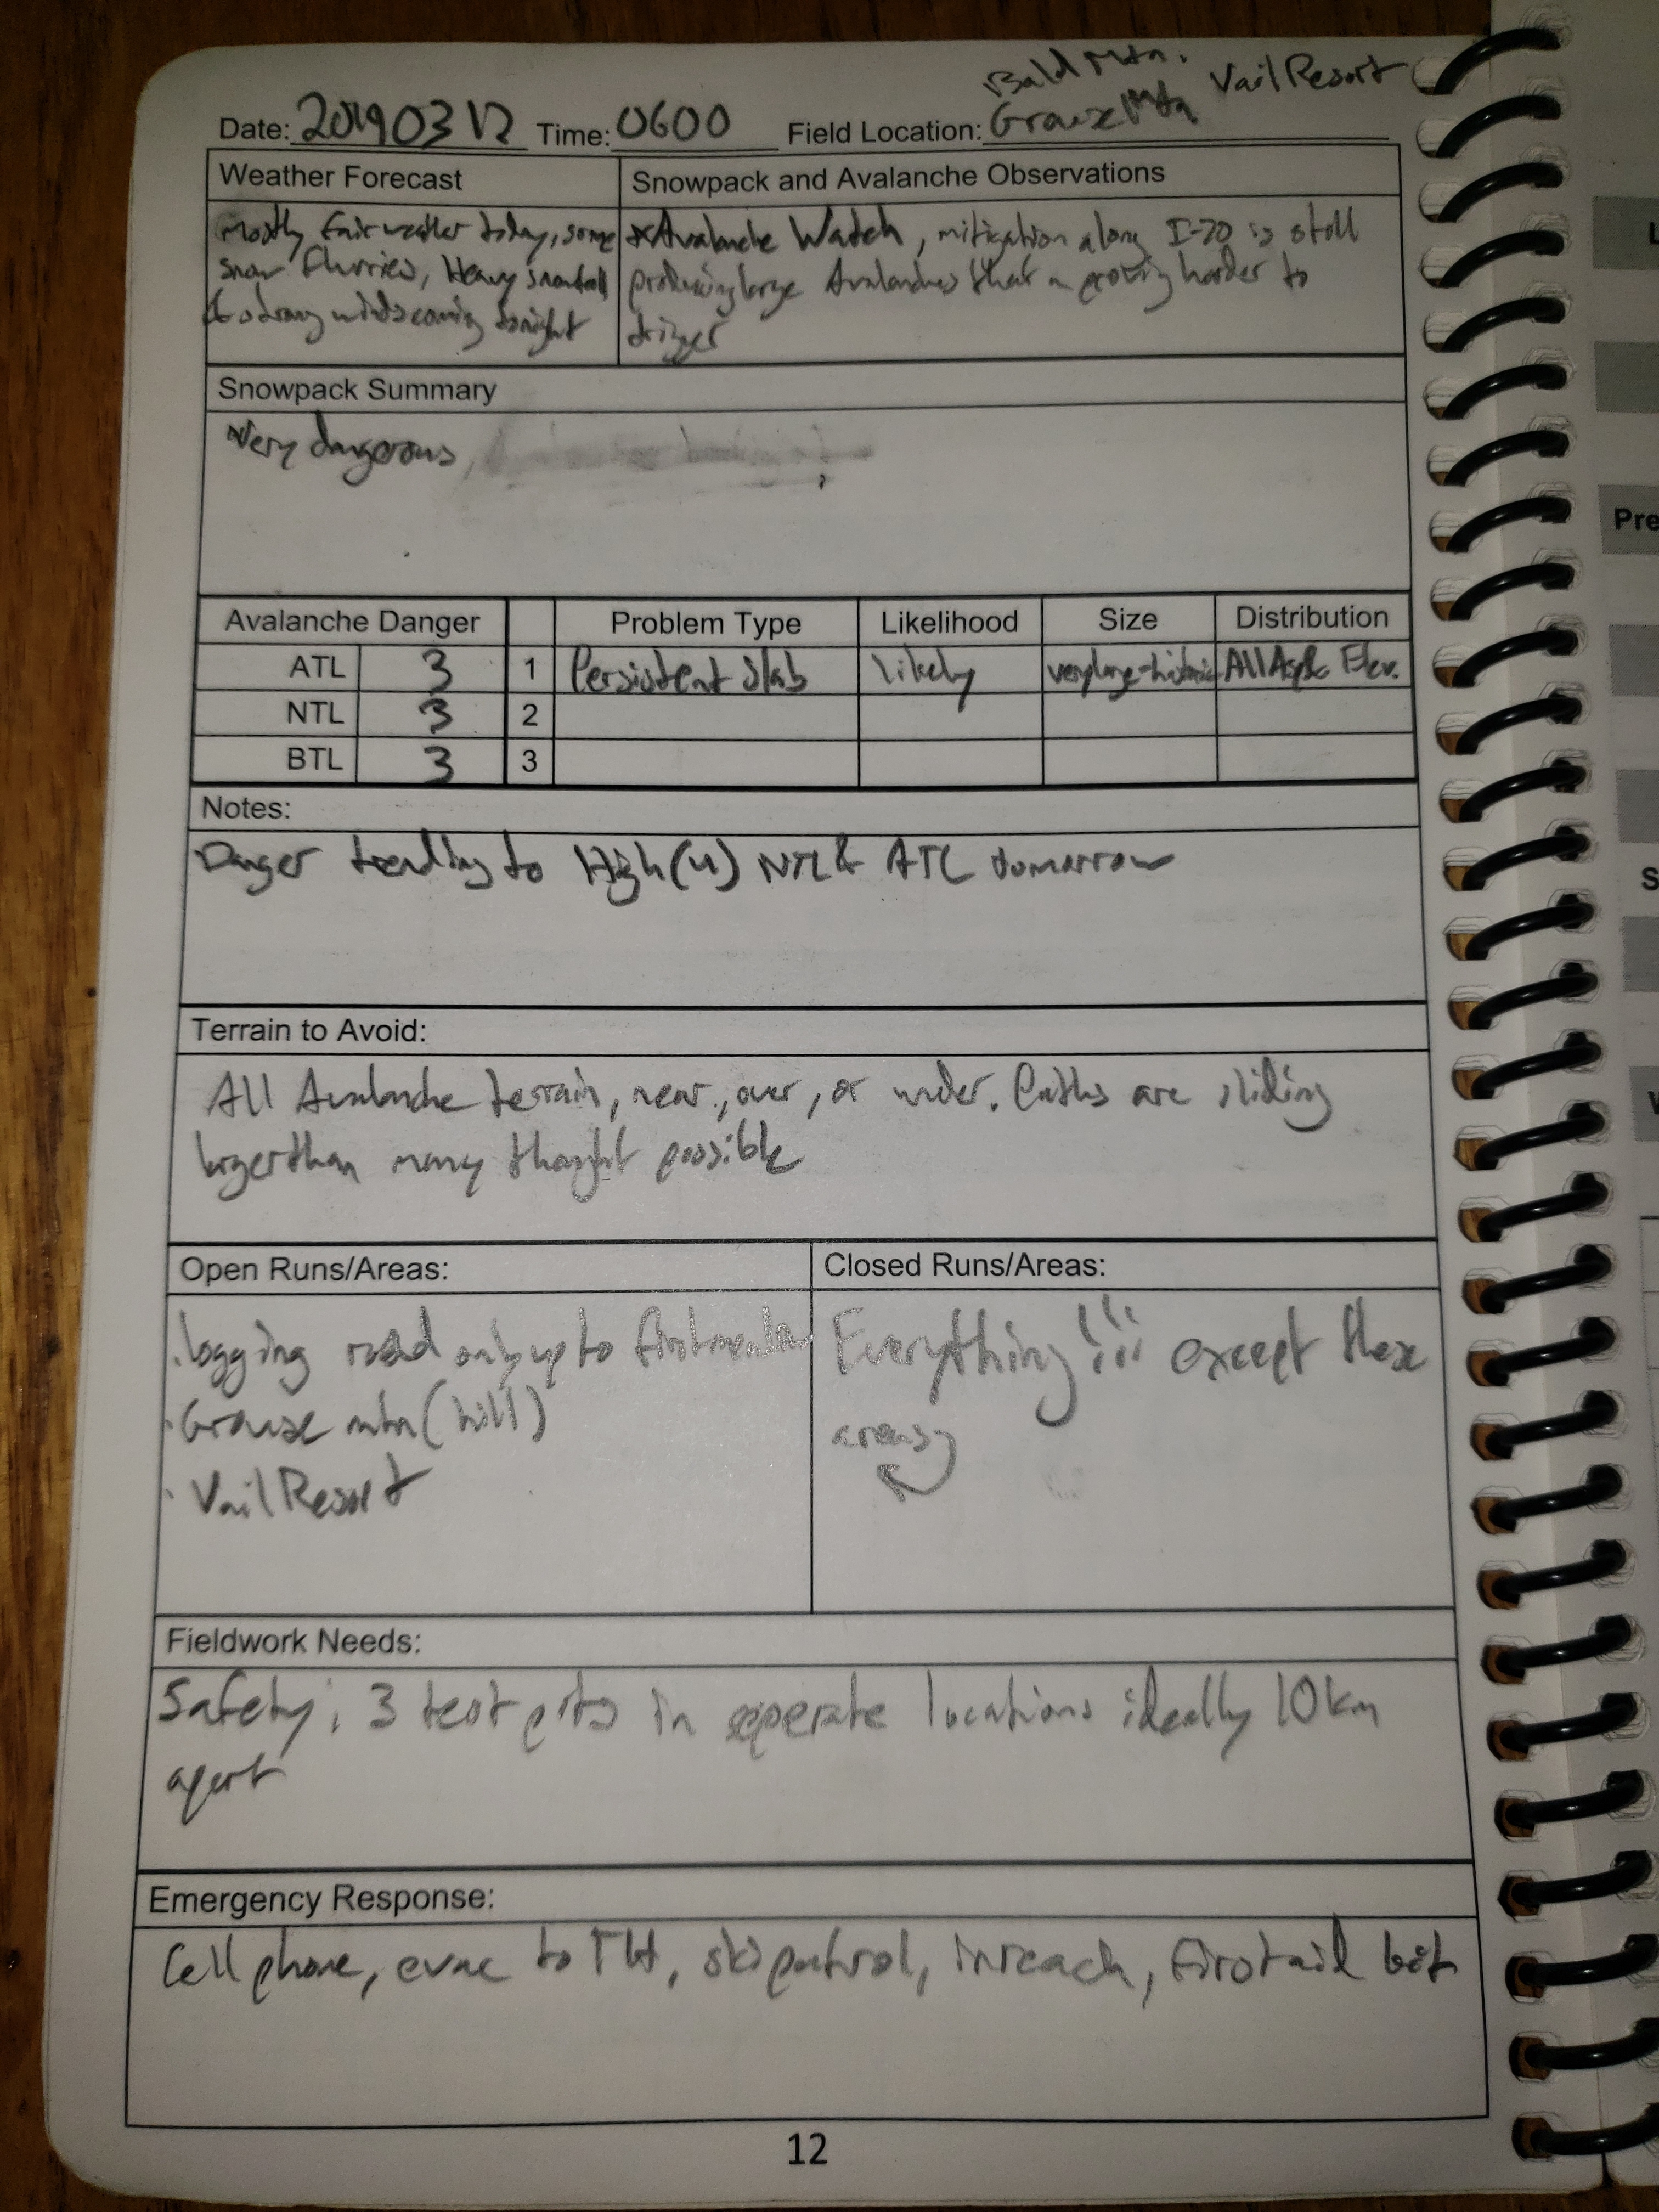 Bald Mtn.
Date: 20190312 Time: 0600 Field Location: Grouse Mtn Vail Resort
Weather Forecast
Snowpack and Avalanche Observations
Mostly fair weather today, some
snow flurries, Heavy snowfall
& strong winds coming tonight
*Avalanche Watch, mitigation along I-70 is still
producing large Avalanches that proving harder to
trigger
Snowpack Summary
Very dangerous,
Avalanche Danger Problem Type Likelihood Size Distribution
ATL 3 1 Persistent Slab likely very large-historic All Asp& Elev.
NTL 3 2
BTL 3 3
Notes:
Danger trending to High (4) NTL & ATL tomorrow
Terrain to Avoid:
All Avalanche terrain, near, over, or under. Paths are sliding
larger than many thought possible
Open Runs/Areas:
· logging road only up to first meadow
· Grouse mtn (hill)
· Vail Resort
Closed Runs/Areas:
Everything!!! except these
areas
Fieldwork Needs:
Safety; 3 test pits in seperate locations ideally 10km
apart
Emergency Response:
Cell phone, evac to TH, ski patrol, inreach, first aid kit
12
Pre